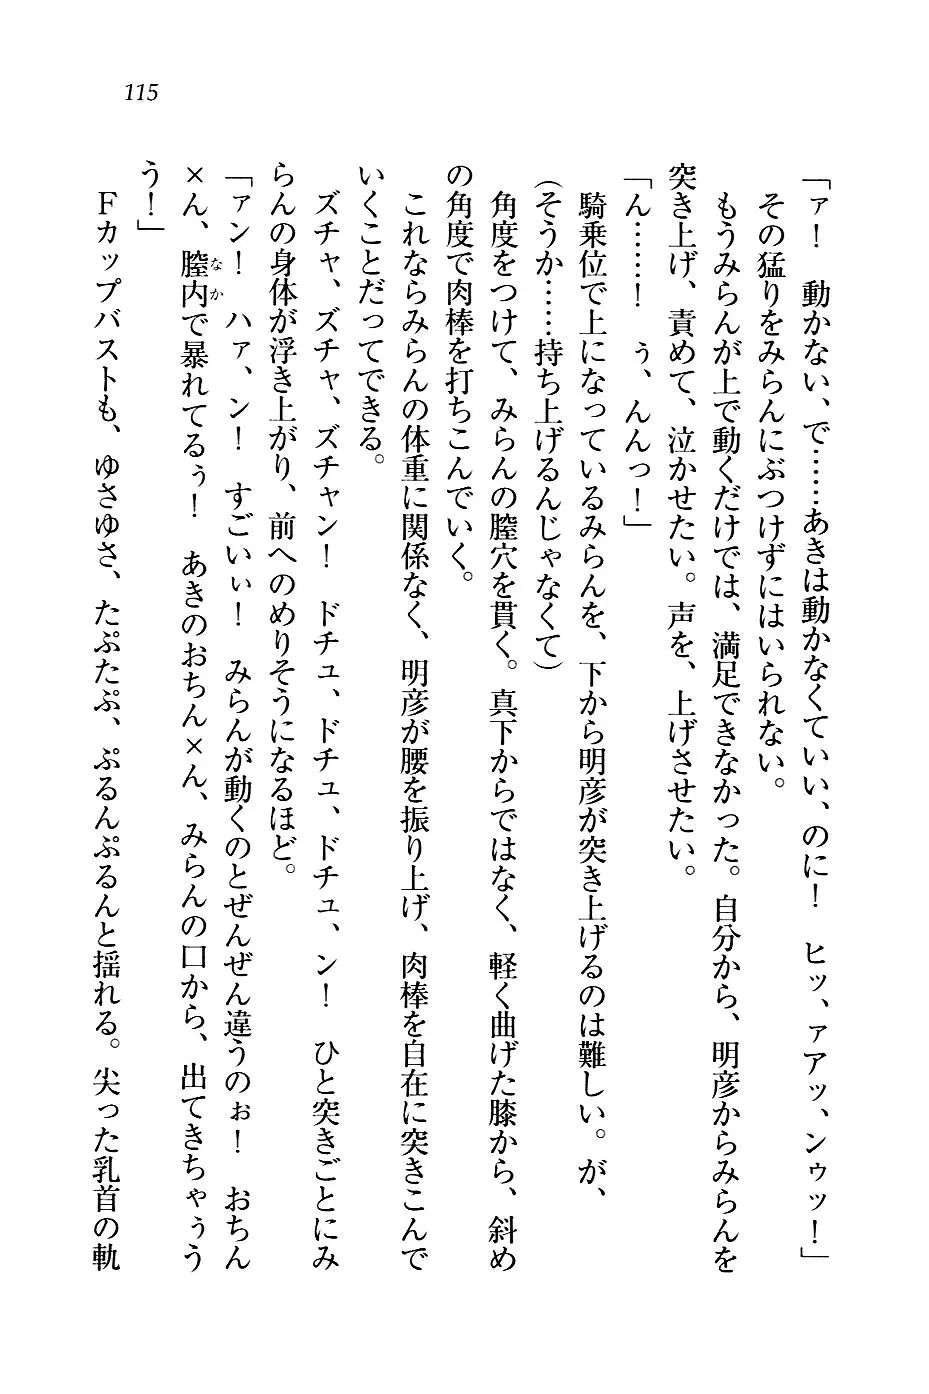 115
「ァ！　動かない、で……あきは動かなくていい、のに！　ヒッ、ァアッ、ンゥッ！」
その猛りをみらんにぶつけずにはいられない。
もうみらんが上で動くだけでは、満足できなかった。自分から、明彦からみらんを
突き上げ、責めて、泣かせたい。声を、上げさせたい。
「ん……！　ぅ、んんっ！」
騎乗位で上になっているみらんを、下から明彦が突き上げるのは難しい。が、
（そうか……持ち上げるんじゃなくて）
角度をつけて、みらんの膣穴を貫く。真下からではなく、軽く曲げた膝から、斜め
の角度で肉棒を打ちこんでいく。
これならみらんの体重に関係なく、明彦が腰を振り上げ、肉棒を自在に突きこんで
いくことだってできる。
ズチャ、ズチャ、ズチャン！　ドチュ、ドチュ、ドチュ、ン！　ひと突きごとにみ
らんの身体が浮き上がり、前へのめりそうになるほど。
「ァン！　ハァ、ン！　すごいぃ！　みらんが動くのとぜんぜん違うのぉ！　おちん
×ん、膣内（なか）で暴れてるぅ！　あきのおちん×ん、みらんの口から、出てきちゃぅう
う！」
Ｆカップバストも、ゆさゆさ、たぷたぷ、ぷるんぷるんと揺れる。尖った乳首の軌